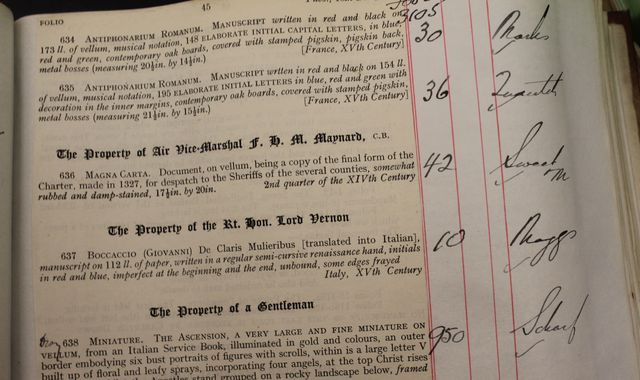 45
FOLIO
3105
634 ANTIPHONARIUM ROMANUM. MANUSCRIPT written in red and black on
173 ll. of vellum, musical notation, 148 ELABORATE INITIAL CAPITAL LETTERS, in blue,
red and green, contemporary oak boards, covered with stamped pigskin, pigskin back,
metal bosses (measuring 20¼in. by 14¼in.) [France, XVth Century]
30 Marks
635 ANTIPHONARIUM ROMANUM. MANUSCRIPT written in red and black on 154 ll.
of vellum, musical notation, 195 ELABORATE INITIAL LETTERS in blue, red and green with
decoration in the inner margins, contemporary oak boards, covered with stamped pigskin,
metal bosses (measuring 21¼in. by 15¼in.) [France, XVth Century]
36 Quaritch
The Property of Air Vice-Marshal F. H. M. Maynard, C.B.
636 MAGNA CARTA. Document, on vellum, being a copy of the final form of the
Charter, made in 1327, for despatch to the Sheriffs of the several counties, somewhat
rubbed and damp-stained, 17¼in. by 20in. 2nd quarter of the XIVth Century
42 Sweet
m
The Property of the Rt. Hon. Lord Vernon
637 BOCCACCIO (GIOVANNI) De Claris Mulieribus [translated into Italian],
manuscript on 112 ll. of paper, written in a regular semi-cursive renaissance hand, initials
in red and blue, imperfect at the beginning and the end, unbound, some edges frayed
Italy, XVth Century
10 Maggs
The Property of a Gentleman
638 MINIATURE. THE ASCENSION, A VERY LARGE AND FINE MINIATURE ON
VELLUM, from an Italian Service Book, illuminated in gold and colours, an outer
border embodying six bust portraits of figures with scrolls, within is a large letter V
built up of floral and leafy sprays, incorporating four angels, at the top Christ rises
stand grouped on a rocky landscape below, framed
950 Scharf